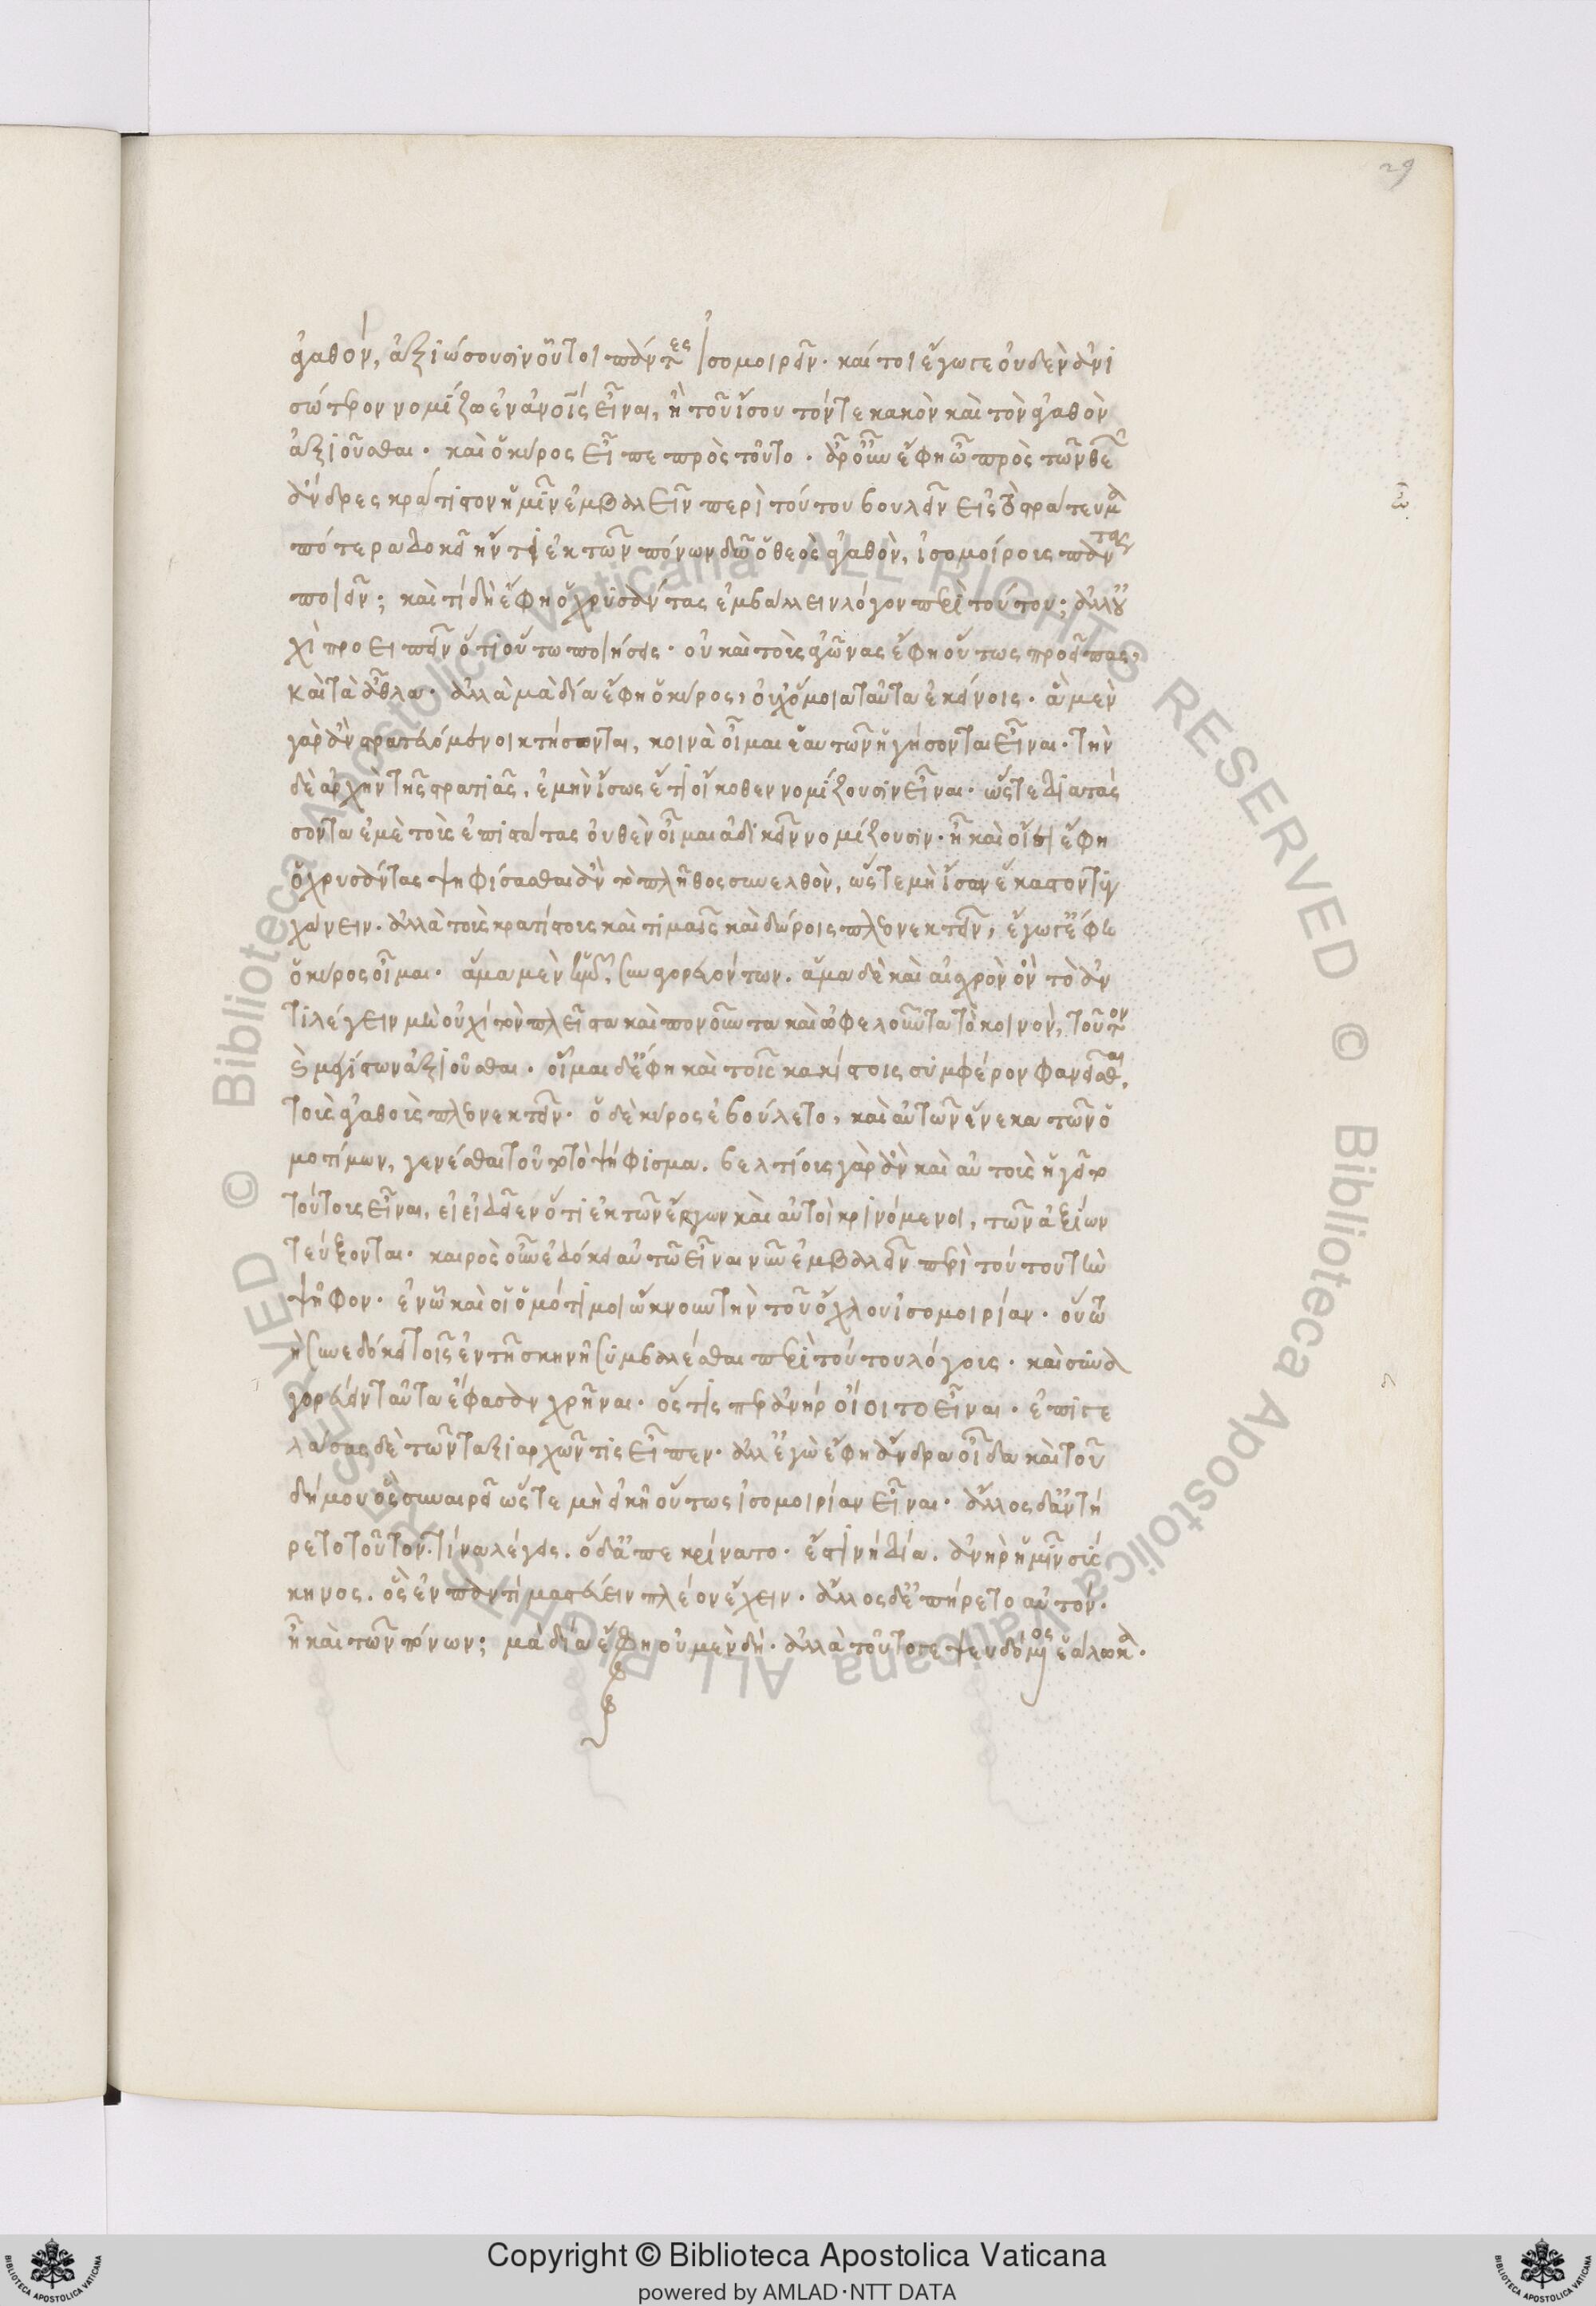 29
ἀγαθόν, ἀξιώσουσιν οὗτοι πάντες ἰσομοιρεῖν. καίτοι ἔγωγε οὐδὲν ἀνι
σώτερον νομίζω ἐν ἀνοις εἶναι, ἢ τοῦ ἴσου τόν τε κακὸν καὶ τὸν ἀγαθὸν
ἀξιοῦσθαι. καὶ ὁ κύρος εἶπε πρὸς τοῦτο. ἆρ οὖν ἔφη ὦ πρὸς τῶν θεῶν
ἄνδρες κράτιστον ἡμῖν ἐμβαλεῖν περὶ τούτου βουλὴν εἰς τὸ στράτευμα
πότερα δοκεῖ ἤν τι ἐκ τῶν πόνων δῶ ὁ θεὸς ἀγαθὸν, ἰσομοίρους πάντας
ποιεῖν; καὶ τί δὴ ἔφη ὁ χρυσάντας ἐμβάλλειν λόγον περὶ τούτου; ἀλλ οὐ
χὶ προειπεῖν ὅτι οὕτω ποιήσεις. οὐ καὶ τοὺς ἀγῶνας ἔφη οὕτως προεῖπας,
καὶ τὰ ἆθλα. ἀλλὰ μὰ δία ἔφη ὁ κύρος, οὐχ ὅμοια ταῦτα ἐκείνοις. ἃ μὲν
γὰρ ἂν στρατευόμενοι κτήσωνται, κοινὰ οἶμαι ἑαυτῶν ἡγήσονται εἶναι. τὴν
δὲ ἀρχὴν τῆς στρατιᾶς, ἐμὴν ἴσως ἔτι οἴκοθεν νομίζουσιν εἶναι. ὥστε διατάσ
σοντα ἐμὲ τοὺς ἐπιστάτας οὐθὲν οἶμαι ἀδικεῖν νομίζουσιν. ἦ καὶ οἴει ἔφη
ὁ χρυσάντας ψηφίσασθαι ἂν τὸ πλῆθος συνελθὸν, ὥστε μὴ ἴσων ἕκαστον τυγ
χάνειν. ἀλλὰ τοὺς κρατίστους καὶ τιμαῖς καὶ δώροις πλεονεκτεῖν, ἔγωγ ἔφη
ὁ κύρος οἶμαι. ἅμα μὲν ὑμῶν συναγορευόντων. ἅμα δὲ καὶ αἰσχρὸν ὂν τὸ ἀν
τιλέγειν μὴ οὐχὶ τὸν πλεῖστα καὶ πονοῦντα καὶ ὠφελοῦντα τὸ κοινὸν, τοῦτον
καὶ μεγίστων ἀξιοῦσθαι. οἶμαι δ ἔφη καὶ τοῖς κακίστοις συμφέρον φανεῖσθαι,
τοὺς ἀγαθοὺς πλεονεκτεῖν. ὁ δὲ κύρος ἐβούλετο, καὶ αὐτῶν ἕνεκα τῶν ὁ
μοτίμων, γενέσθαι τοῦτο τὸ ψήφισμα. βελτίους γὰρ ἂν καὶ αὐτοὺς ἡγεῖτο
τούτους εἶναι, εἰ εἰδεῖεν ὅτι ἐκ τῶν ἔργων καὶ αὐτοὶ κρινόμενοι, τῶν ἀξίων
τεύξονται. καιρὸς οὖν ἐδόκει αὐτῶ εἶναι νῦν ἐμβαλεῖν περὶ τούτου τὴν
ψῆφον. ἐν ᾧ καὶ οἱ ὁμότιμοι ὤκνουν τὴν τοῦ ὄχλου ἰσομοιρίαν. οὕτω
δὴ συνεδόκει τοῖς ἐν τῆ σκηνῆ συμβαλέσθαι περὶ τούτου λόγους. καὶ συνα
γορεύειν ταῦτα ἔφασαν χρῆναι. ὅστις περ ἀνὴρ οἴοιτο εἶναι. ἐπιγε
λάσας δὲ τῶν ταξιάρχων τις εἶπεν. ἀλλ ἐγὼ ἔφη ἄνδρα οἶδα καὶ τοῦ
δήμου ὃς συναιρεῖ ὥστε μὴ εἰκῆ οὕτως ἰσομοιρίαν εἶναι. ἄλλος δ ἀντή
ρετο τοῦτον. τίνα λέγεις. ὁ δ ἀπεκρίνατο. ἔστι νὴ δία. ἀνὴρ ἡμῖν σύσ
κηνος. ὃς ἐν παντὶ μαστεύειν πλέον ἔχειν. ἄλλος δ ἐπήρετο αὐτόν.
ἦ καὶ τῶν πόνων; μὰ δία ἔφη οὐ μὲν δή. ἀλλὰ τοῦτό γε ψευδόμενος ἑάλωκα.
Copyright © Biblioteca Apostolica Vaticana
powered by AMLAD·NTT DATA